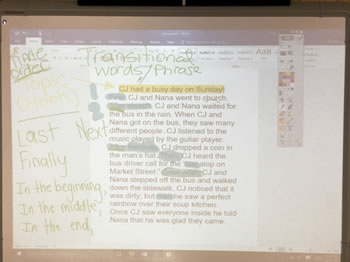 Time order
Transitional
Words/Phrase
Topic
CJ had a busy day on Sunday!
First, CJ and Nana went to church.
CJ and Nana waited for
the bus in the rain. When CJ and
Nana got on the bus, they saw many
different people. CJ listened to the
music played by the guitar player.
CJ dropped a coin in
the man's hat. Then, CJ heard the
bus driver call for the "last stop on
Market Street." CJ and
Nana stepped off the bus and walked
down the sidewalk. CJ noticed that it
was dirty, but then he saw a perfect
rainbow over their soup kitchen.
Once CJ saw everyone inside he told
Nana that he was glad they came.
Last Next
Finally
In the beginning,
In the middle,
In the end,